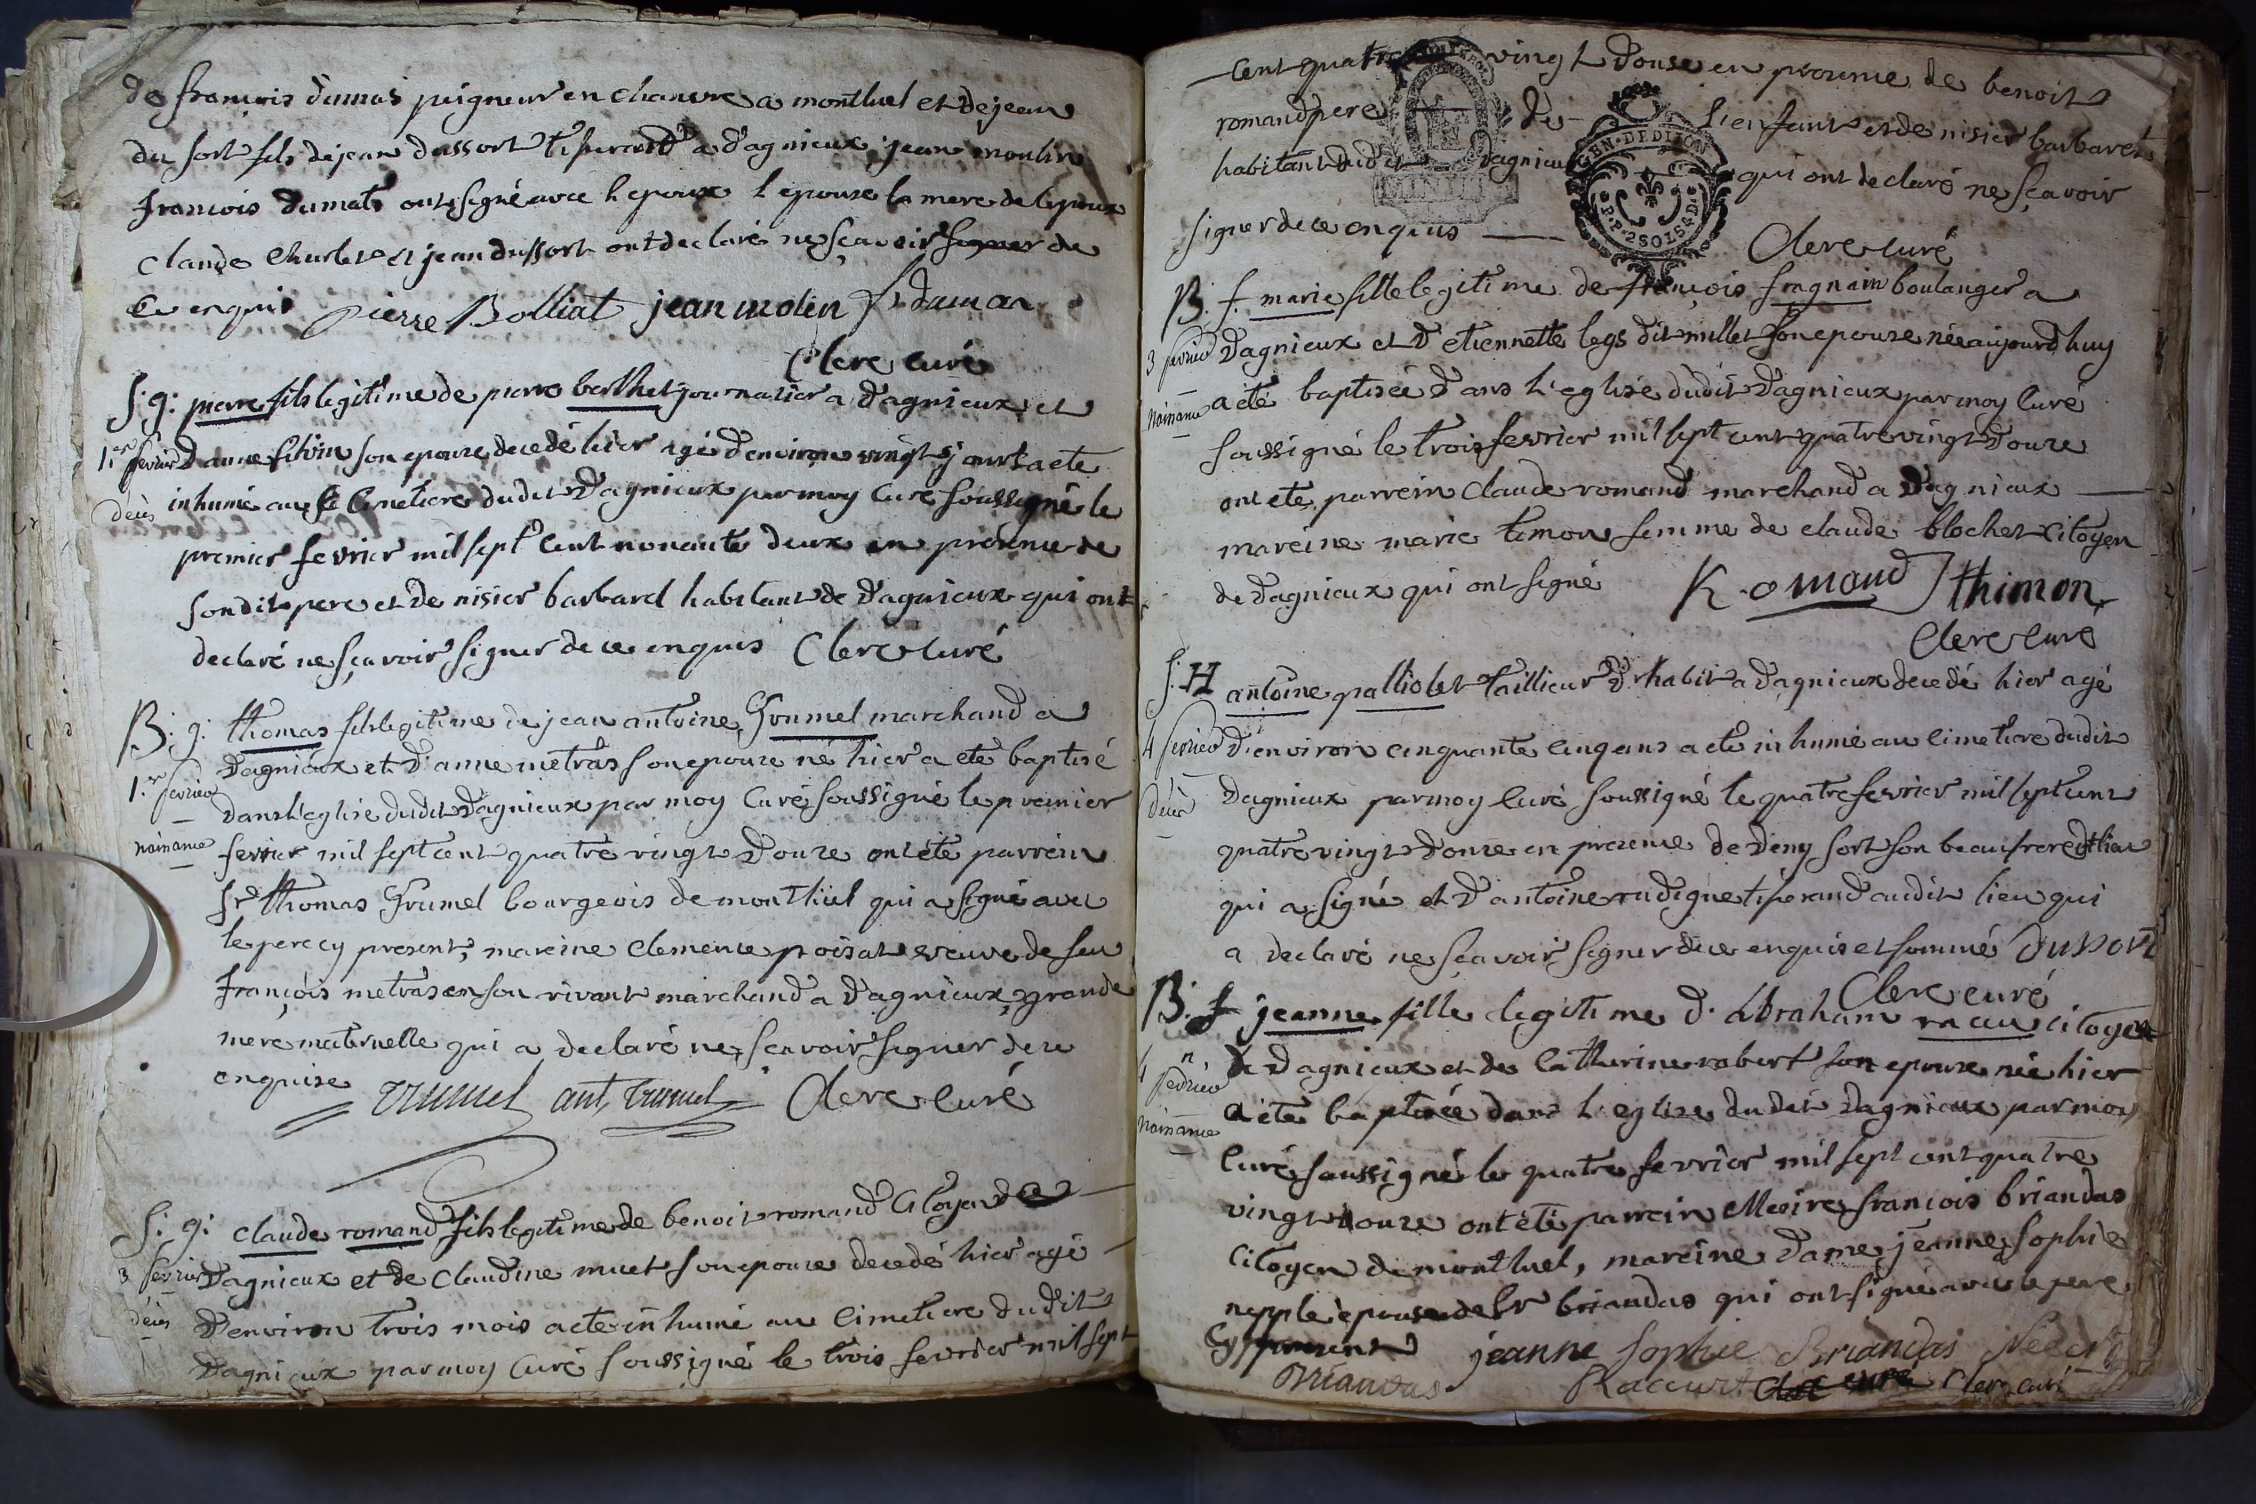 de françois dumas peigneur en chanvre a montluel et de jean
du sort fils de jean dussort tiserand a dagnieux, jean moulin
françois dumats ont signé avec lepoux lepouse la mere de lepoux
claude Charlet et jean dussort ont declaré ne sçavoir signer de
ce enquis pierre Bolliat jean molin f. dumas
Clerc curé
S: g: pierre fils legitime de pierre berthet journalier a dagnieux et
1.er fevrier d'anne son epouze decedé hier agé denviron vingt jours a eté
décès inhumé au cimetiere dudit dagnieux par moy curé soussigné le
premier fevrier mil sept cent nonante deux en présence de
son dit pere et de nisier barbaret habitant de dagnieux qui ont
declaré ne sçavoir signer de ce enquis Clerc curé
B: g: thomas fils legitime de jean antoine Grumel marchand a
dagnieux et d'anne metras son epouze né hier a eté baptisé
1.er fevrier dans l'eglise dudit dagnieux par moy curé soussigné le premier
naissance fevrier mil sept cent quatre vingt douze ont été parrein
Sr thomas Grumel bourgeois de montluel qui a signé avec
le pere cy present, mareine clemence poisat veuve de feu
françois metras en son vivant marchand a dagnieux, grande
mere maternelle qui a declaré ne sçavoir signer de ce
enquise Grumel ant, Grumel Clerc curé
S: g: claude romand fils legitime de benoit romand citoyen de
3 fevrier dagnieux et de claudine muet son epouze decedé hier agé
décès denviron trois mois a eté inhumé au cimetiere dudit
dagnieux par moy curé soussigné le trois fevrier mil sept
cent quatre vingt douse en présence de benoit
romand pere de l'enfant et de nisier barbaret
habitant dudit dagnieux qui ont declaré ne sçavoir
signer de ce enquis
GEN. DE DIJON
P.P. 2 SOLS 4 D.
Clerc curé
B. f. marie fille legitime de françois fragnain boulanger a
3 fevrier dagnieux et d'etiennette legs dit millet son epouze née aujourdhuy
naissance a eté baptisée dans l'eglise dudit dagnieux par moy curé
soussigné le trois fevrier mil sept cent quatre vingt douze
ont eté parrein claude romand marchand a dagnieux
mareine marie timon femme de claude blochet citoyen
de dagnieux qui ont signé Romand thimon
Clerc curé
S: H antoine palliolet taillieur d'habit a dagnieux decedé hier agé
4 fevrier d'environ cinquante cinq ans a eté inhumé au cimetiere dudit
décès dagnieux par moy curé soussigné le quatre fevrier mil sept cent
quatre vingt douze en presence de deny sort son beaufrere dthiau
qui a signé et d'antoine rudigue tiserand audit lieu qui
a declaré ne sçavoir signer de ce enquis et sommé Dussort
Clerc curé
B. f jeanne fille legitime d'Abraham racur citoyen
4 fevrier de dagnieux et de Catherine robert son epouze née hier
naissance a eté baptisée dans l'eglise dudit dagnieux par moy
curé soussigné le quatre fevrier mil sept cent quatre
vingt douze ont été parrein Messire françois briandas
citoyen de montluel, mareine dame jeanne sophie
nepple epouse de Sr briandas qui ont signé avec le pere
cy present jeanne sophie Briandas
Briandas Racurt Clerc curé